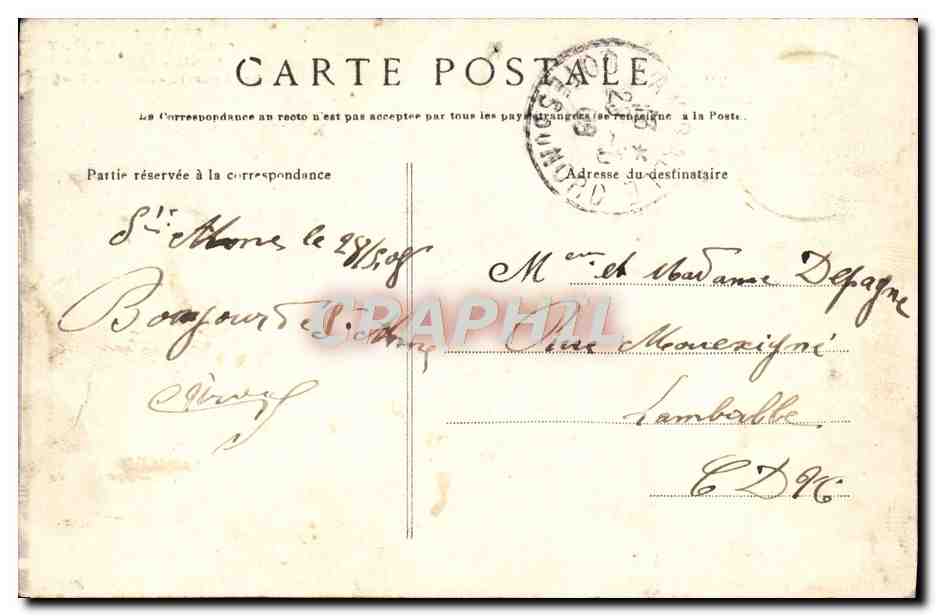 CARTE POSTALE
La Correspondance au recto n'est pas acceptée par tous les pays étrangers (se renseigner à la Poste.
Partie réservée à la correspondance
Adresse du destinataire
le 28/5.08
Bonjour de
Mer et Madame Depagne
Rue Mouexigné
Lamballe
CDN
CÔTES DU NORD
CPAPHIL